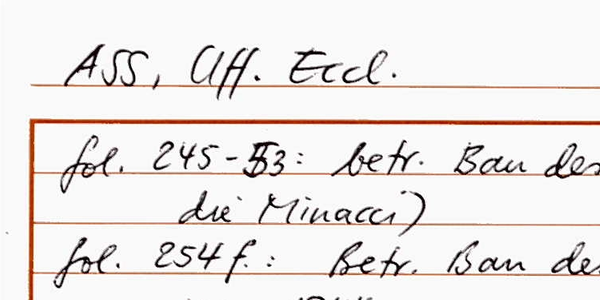 ASS, Uff. Eccl.
fol. 245-53: betr. Bau des
die Minacci)
fol. 254 f.: Betr. Bau de